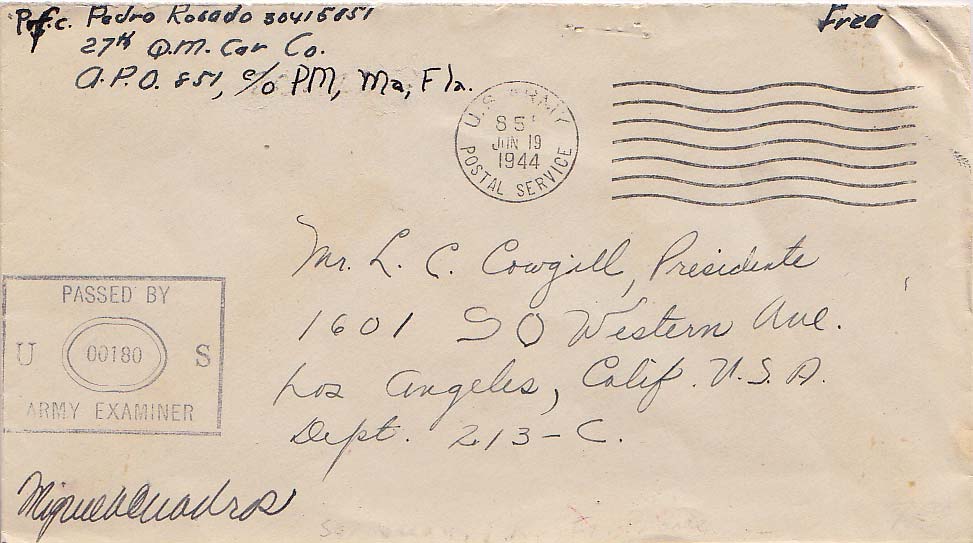 Pfc. Pedro Rosado 30415851
27th Q.M. Car Co.
A.P.O. 851, c/o PM, Ma, Fla.
Free
U.S. ARMY
851
JUN 19
1944
POSTAL SERVICE
Mr. L. C. Cowgill, Presidente
1601 SO Western Ave.
Los Angeles, Calif. U.S.A.
Dept. 213-C.
PASSED BY
U 00180 S
ARMY EXAMINER